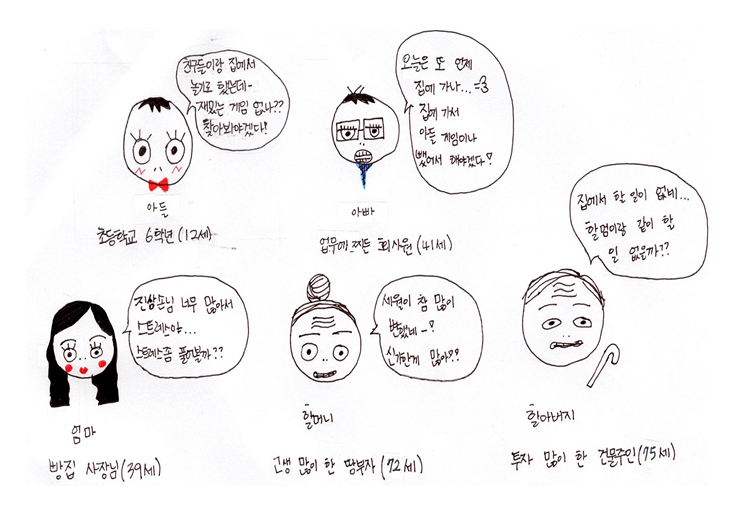 친구들이랑 집에서
놀기로 했는데~
재밌는 게임 없나??
찾아봐야겠다!
아들
초등학교 6학년 (12세)
오늘은 또 언제
집에 가나... =3
집에 가서
아들 게임이나
뺏어서 해야겠다!
아빠
업무에 찌든 회사원 (41세)
집에서 할 일이 없네...
할멈이랑 같이 할
일 없을까??
진상손님 너무 많아서
스트레스야...
스트레스좀 풀어볼까??
엄마
빵집 사장님 (39세)
세월이 참 많이
변했네~!
신기한게 많아??
할머니
고생 많이 한 땅부자 (72세)
할아버지
투자 많이 한 건물주인 (75세)